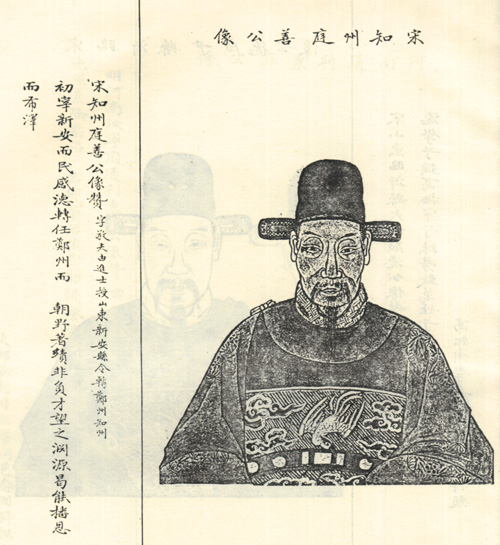 宋知州庭善公像
宋知州庭善公像贊 字敬夫由進士授山東新安縣令轉鄭州知州
初宰新安而民感德轉任鄭州而 朝野著績非負才望之淵源曷能播恩
而布澤